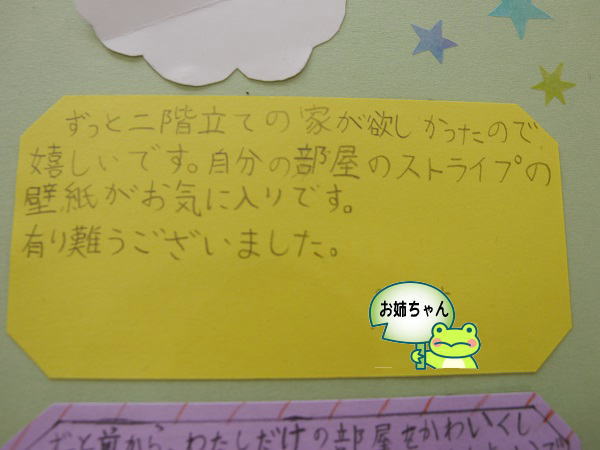 ずっと二階立ての家が欲しかったので
嬉しいです。自分の部屋のストライプの
壁紙がお気に入りです。
有り難うございました。
お姉ちゃん
ずっと前から、わたしだけの部屋をかわいくし